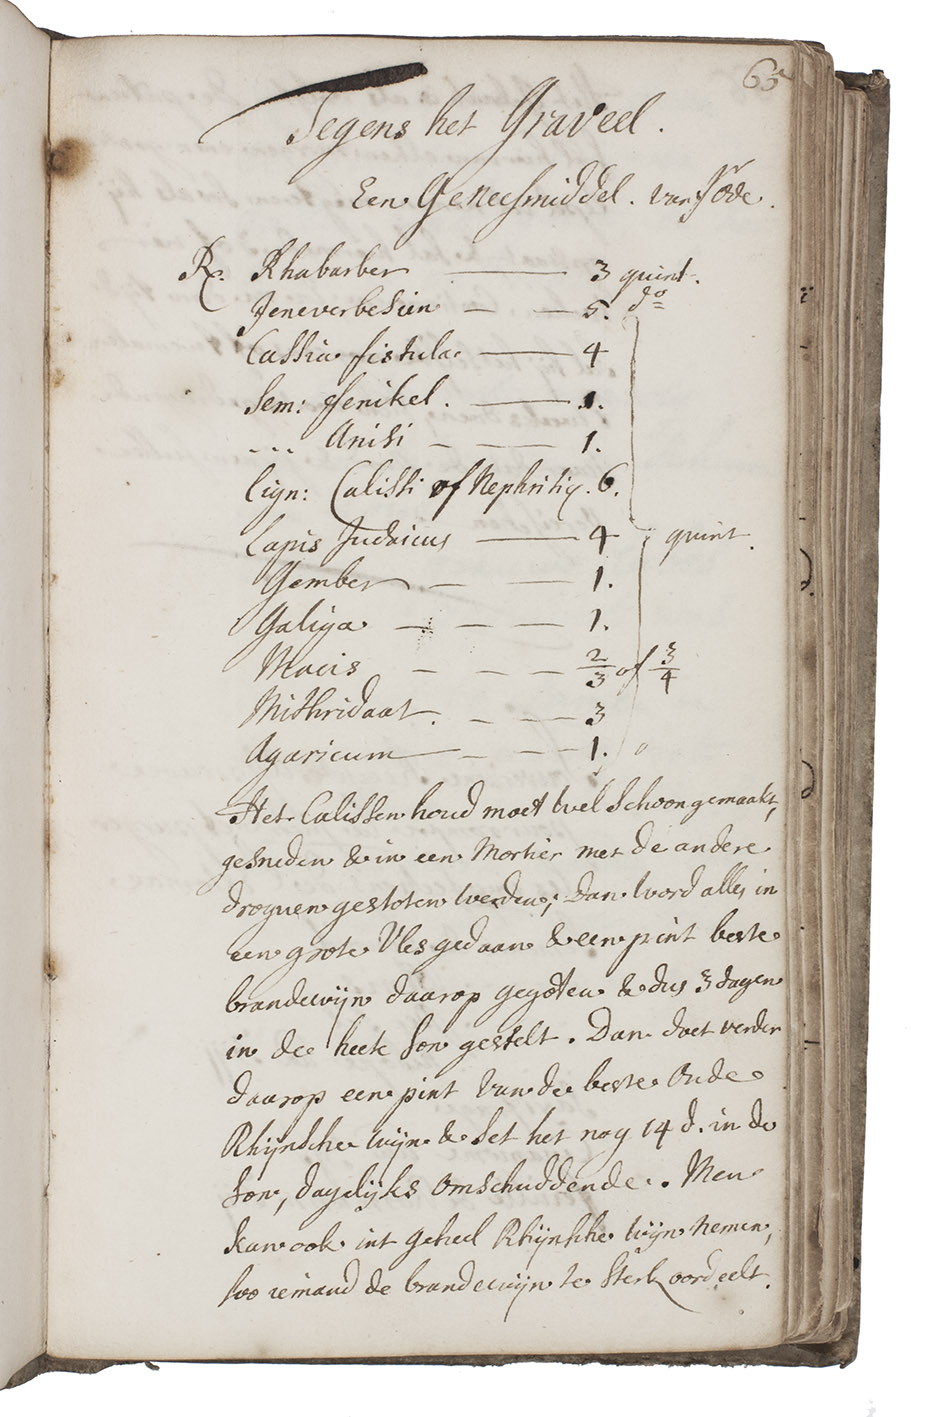 65
Tegens het Graveel.
Een Geneesmiddel. van
R. Rhabarber — 3 quint.
Jeneverbesien — — 5. do
Cassia fistula — 4
Sem: ffenikel. — 1.
... Anisi — — 1.
Lign: Calissi of Nephritiq. 6.
Lapis Judaicus — 4 quint.
Gember — — 1.
Galiga — — — 1.
Macis — — — 2/3 of 3/4
Mithridaat. — — 3
Agaricum — — 1.
Het Calissen houd moet wel schoon gemaakt,
gesneden & in een Mortier met de andere
droguen gestoten werden; dan word alles in
een grote Vles gedaan & een pint beste
brandewijn daarop gegoten & dus 3 dagen
in de heete Son gestelt. Dan doet verder
daarop een pint van de beste Oude
Rhijnsche wijn & set het nog 14 d. in de
Son, dagelijks omschuddende. Men
kan ook int geheel Rhijnsche wijn nemen,
soo iemand de brandewijn te sterk oordeelt.